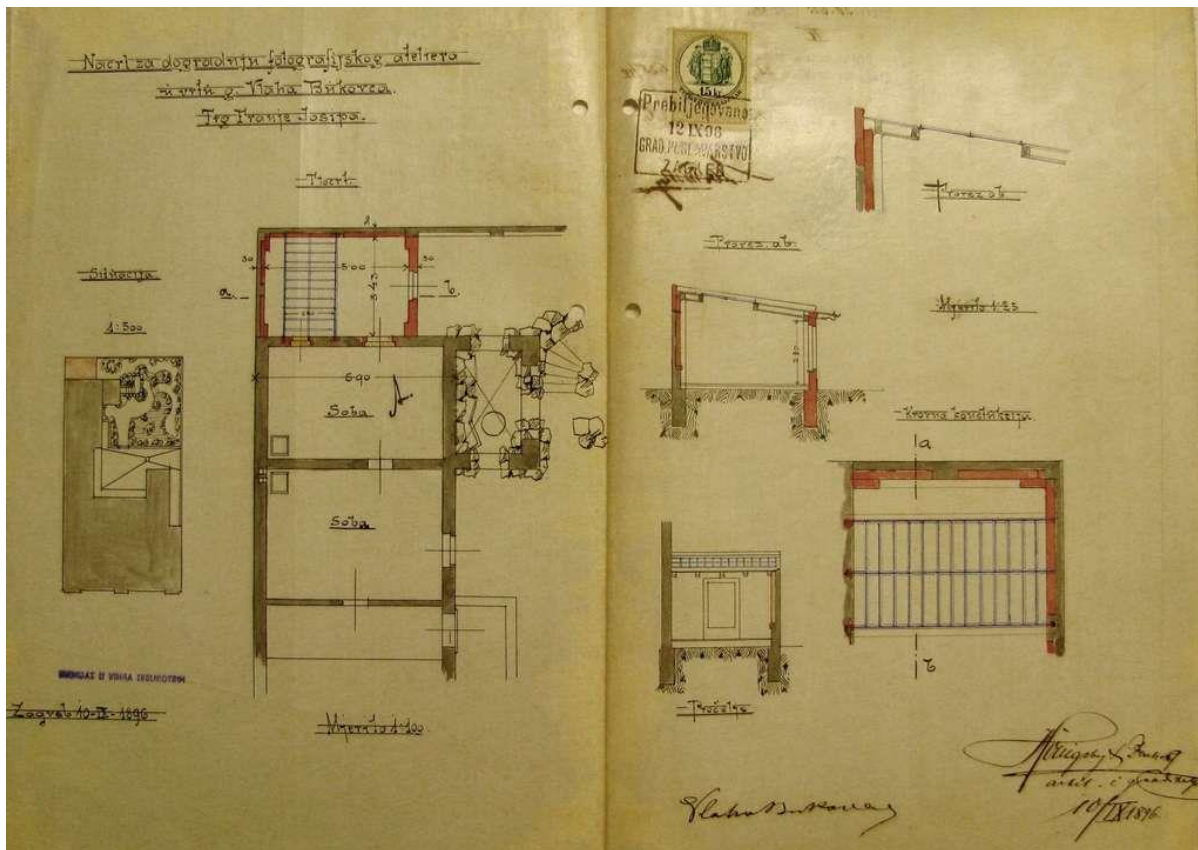 Nacrt za dogradnju fotografijskog ateliera
u vrtu g. Vlaha Bukovca.
Trg Franje Josipa.
Tlocrt.
Situacija.
1:500
30
500
30
343
a.
b.
690
Soba
A
Soba
Zagreb 10-IX-1896
Mjerilo 1:100
15 kr
Prebilježovano
12 IX 96
GRAD. POGLAVARSTVO
ZAGREB
Prorez ab.
Prorez ab
Mjerilo 1:25
280
Krovna konstrukcija.
a
b
Pročelje
Vlaho Bukovac
Hönigsberg & Deutsch
arhit. i graditelji
10/IX 1896